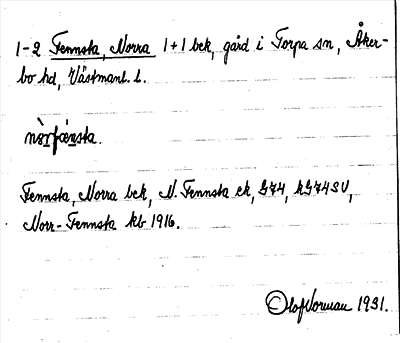 1-2 Fennsta, Norra 1+1 bek, gård i Torpa sn, Åker-
bo hd, Västmanl. l.
nò̀rfæ̀nsta.
Fennsta, Norra bek, N. Fennsta ek, G74, hG74SV,
Norr-Fennsta kb 1916.
Olof Norman 1931.